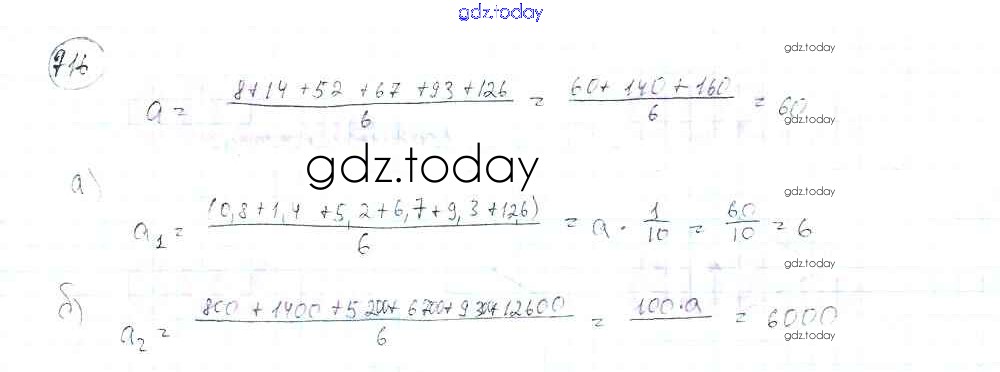 gdz.today
716
gdz.today
a = (8+14+52+67+93+126)/6 = (60+140+160)/6 = 60
gdz.today
gdz.today
а)
gdz.today
a₁ = (0,8+1,4+5,2+6,7+9,3+12,6)/6 = a · 1/10 = 60/10 = 6
gdz.today
gdz.today
б)
a₂ = (800+1400+5200+6700+9300+12600)/6 = 100·a = 6000
gdz.today